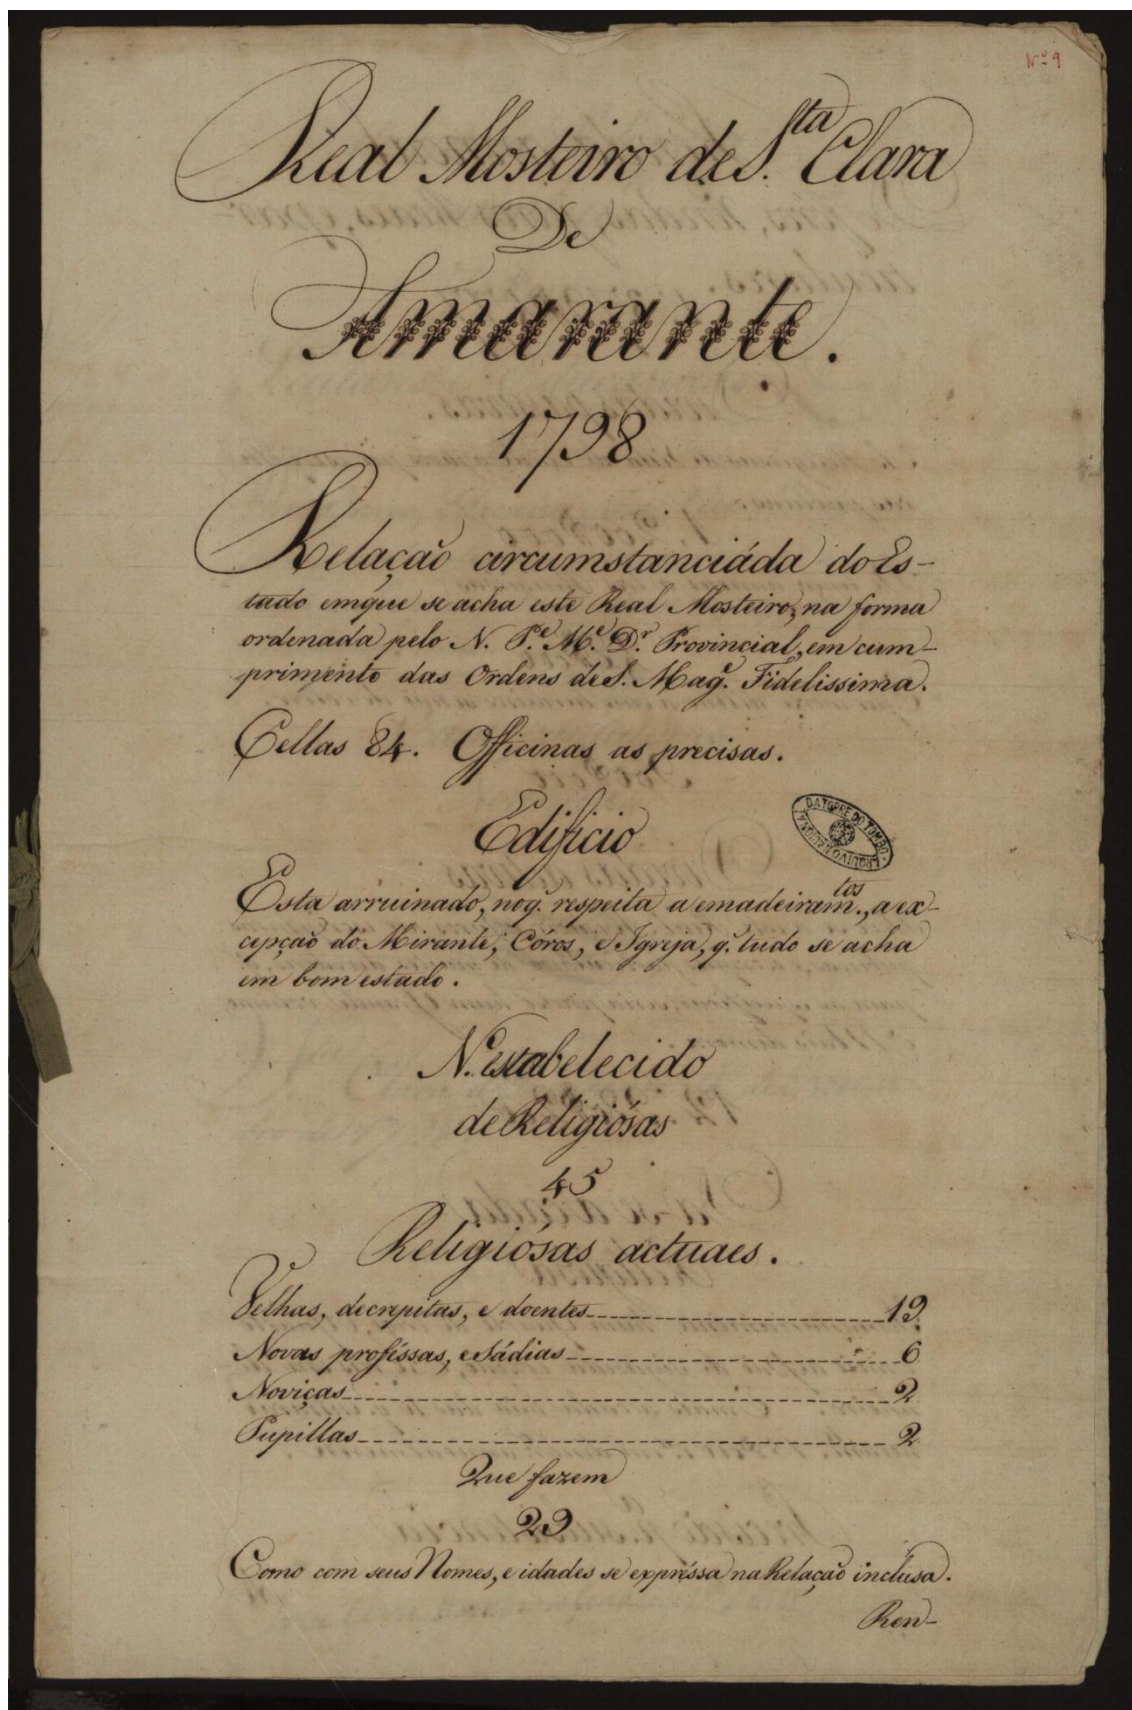 Nº 9
Real Mosteiro de S.ta Clara
De
Amarante.
1798
Relação circumstanciáda do Es-
tado emque se acha este Real Mosteiro, na forma
ordenada pelo N. P.e M.e D.r Provincial, em cum-
primento das Ordens de S. Mag.e Fidelissima.
Cellas 84. Officinas as precisas.
Edificio
DA TORRE DO TOMBO
ARQUIVO NACIONAL
Esta arruinado, noq. respeita a emadeiram.tos, a ex-
cepção do Mirante, Córos, e Igreja, q. tudo se acha
em bom estado.
N.o estabelecido
de Religiósas
45
Religiósas actuaes.
Velhas, decrepitas, e doentes 19.
Novas proféssas, e Sádias 6
Noviças 2
Pupillas 2
Que fazem
29
Como com seus Nomes, e idades se expréssa na Relação inclusa.
Ren-